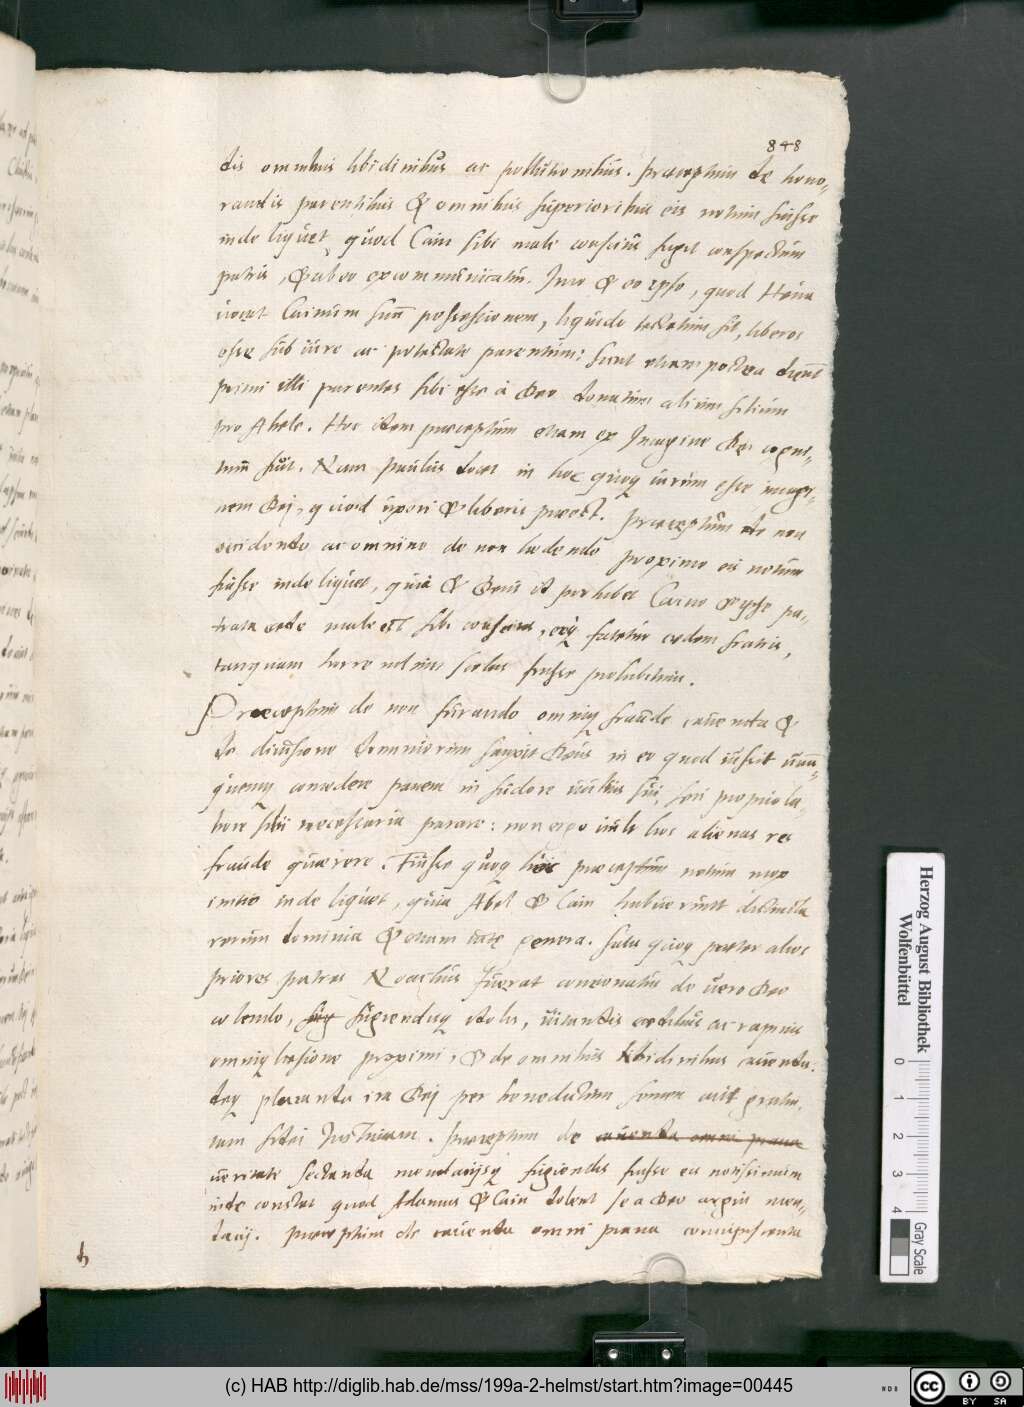 848
dis omnibus libidinibus ac pollutionibus. Præceptum de hono-
randis parentibus & omnibus superioribus eis notum fuisse
inde liquet quod Cain sibi male conscius fugit conspectum
patris, & ab eo excommunicatur. Imo & eo ipso, quod Heua
uocat Cainum suum possessionem, liquido testatum sit, liberos
esse sub iure ac potestate parentum: sicut etiam postea dicunt
primi illi parentes sibi esse à Deo donatum alium filium
pro Abele. Hoc item præceptum etiam ex Imagine Dei cogni-
tum fuit. Nam Paulus docet in hoc quoq uirum esse imagi-
nem Dei, quod uxori & liberis præest. Præceptum de non
occidendo ac omnino de non lædendo proximo eis notum
fuisse inde liquet, quia & Deus id prohibet Caino & ipse pa-
trata cede male est sibi conscius, eoq fatetur cædem fratris,
tanquam horrendum scelus fuisse prohibitum.
Præceptum de non furando omniq fraude cauenda &
de diuisione dominiorum sanxit Deus in eo quod iussit unu-
quemq comedere panem in sudore uultus sui, seu proprio la-
bore sibi necessaria parare: non ergo uult hoc alienas res
fraude quærere. Fuisse quoq hoc præceptum notum mox
initio inde liquet, quia Abel & Cain habuerunt distincta
rerum dominia & etiam uitæ genera. Satis quoq præter alios
priores patres Noachus fuerat concionatus de uero Deo
colendo, fugiendisq idolis, uitandis cædibus ac rapinis
omniq læsione proximi, & de omnibus libidinibus cauendis.
deq placanda ira Dei per benedictum semen
fidei Iustitiam. Præceptum de cauenda omni praua
ueritate sectanda mendacijsq fugiendis fuisse eis notissimum
inde constat quod Adamus & Cain dolent se a Deo argui men-
dacij. Præceptum de cauenda omni praua concupiscentia
h
Herzog August Bibliothek
Wolfenbüttel
0
1
2
3
4
Gray Scale
(c) HAB http://diglib.hab.de/mss/199a-2-helmst/start.htm?image=00445
cc BY SA